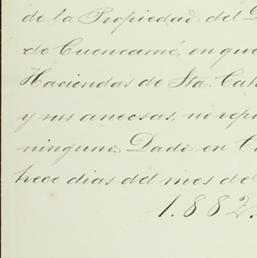 de la Propiedad del D
de Cuencamé, en que
Haciendas de Sta. Cat
y sus anecsas, no repo
ninguno. Dado en C
hece dias del mes de
1.882.